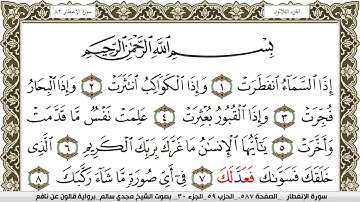 سورة الإنفطار ٨٢
الجزء الثلاثون
بِسْمِ ٱللَّهِ ٱلرَّحْمَٰنِ ٱلرَّحِيمِ
إِذَا ٱلسَّمَآءُ ٱنفَطَرَتْ ١ وَإِذَا ٱلْكَوَاكِبُ ٱنتَثَرَتْ ٢ وَإِذَا ٱلْبِحَارُ
فُجِّرَتْ ٣ وَإِذَا ٱلْقُبُورُ بُعْثِرَتْ ٤ عَلِمَتْ نَفْسٌ مَّا قَدَّمَتْ
وَأَخَّرَتْ ٥ يَٰٓأَيُّهَا ٱلْإِنسَٰنُ مَا غَرَّكَ بِرَبِّكَ ٱلْكَرِيمِ ٦ ٱلَّذِى
خَلَقَكَ فَسَوَّىٰكَ فَعَدَّلَكَ ٧ فِىٓ أَىِّ صُورَةٍ مَّا شَآءَ رَكَّبَكَ ٨
سورة الإنفطار _ الصفحة ٥٨٧ _ الحزب ٥٩ _ الجزء ٣٠ _ بصوت الشيخ مجدي سالم _ برواية قالون عن نافع